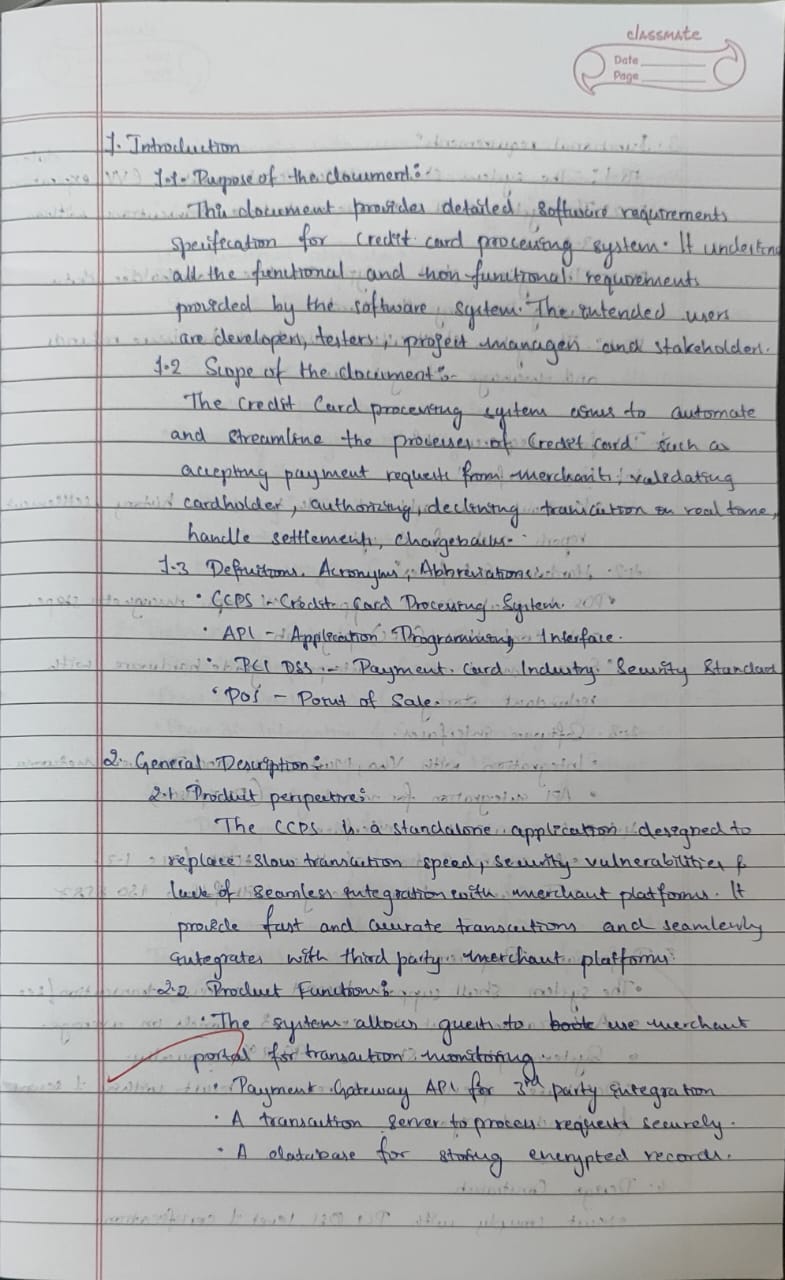 classmate
Date
Page
1. Introduction
1.1. Purpose of the document:-
This document provides detailed software requirements
specification for credit card processing system. It underlines
all the functional and non-functional requirements
provided by the software system. The intended users
are developers, testers, project managers and stakeholders.
1.2 Scope of the document:-
The Credit Card processing system aims to automate
and streamline the processes of Credit card such as
accepting payment requests from merchants, validating
cardholder, authorizing, declining transaction in real time,
handle settlements, chargebacks.
1.3 Definitions, Acronyms, Abbreviations:-
• CCPS :- Credit Card Processing System.
• API - Application Programming Interface.
• PCI DSS :- Payment Card Industry Security Standard
• POS - Point of Sale.
2. General Description:
2.1 Product perspective:
The CCPS is a standalone application designed to
replace slow transaction speed, security vulnerabilities &
lack of seamless integration with merchant platforms. It
provide fast and accurate transactions and seamlessly
integrates with third party merchant platforms
2.2 Product Functions:
• The system allows guests to use merchant
portal for transaction monitoring.
• Payment Gateway API for 3rd party integration
• A transaction server to process requests securely.
• A database for storing encrypted records.